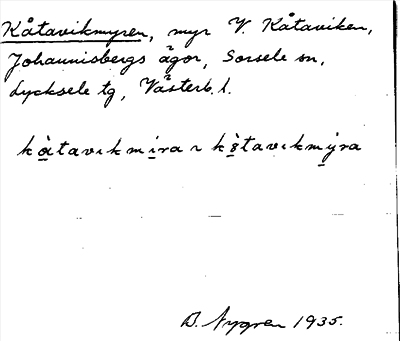 Kåtavikmyren, myr V. Kåtaviken,
Johannisbergs ägor, Sorsele sn,
Lycksele tg, Västerb. l.
kå̀tavıkmira ~ kò̤tavıkmýra
B. Nygren 1935.